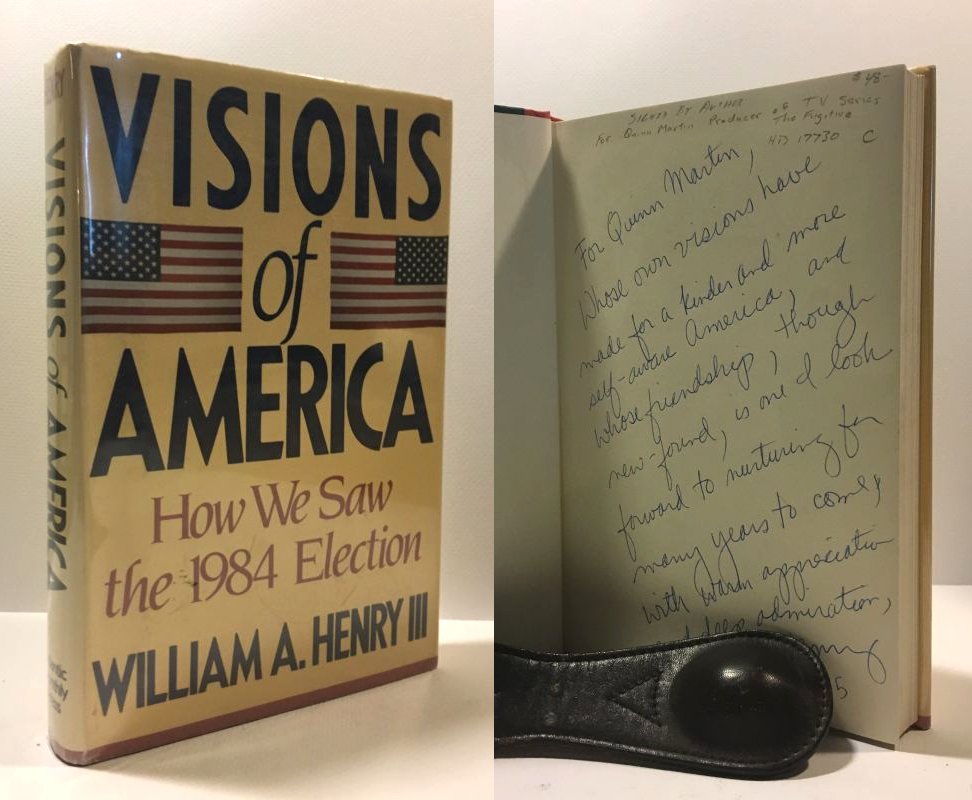 VISIONS of AMERICA
VISIONS
of
AMERICA
How We Saw
the 1984 Election
WILLIAM A. HENRY III
$48-
SIGNED BY AUTHOR
For Quinn Martin Producer of TV Series
The Fugitive
17730 C
For Quinn Martin,
Whose own visions have
made for a kinder and more
self-aware America, and
whose friendship, though
new-found, is one I look
forward to nurturing for
many years to come,
with warm appreciation
and deep admiration,
5